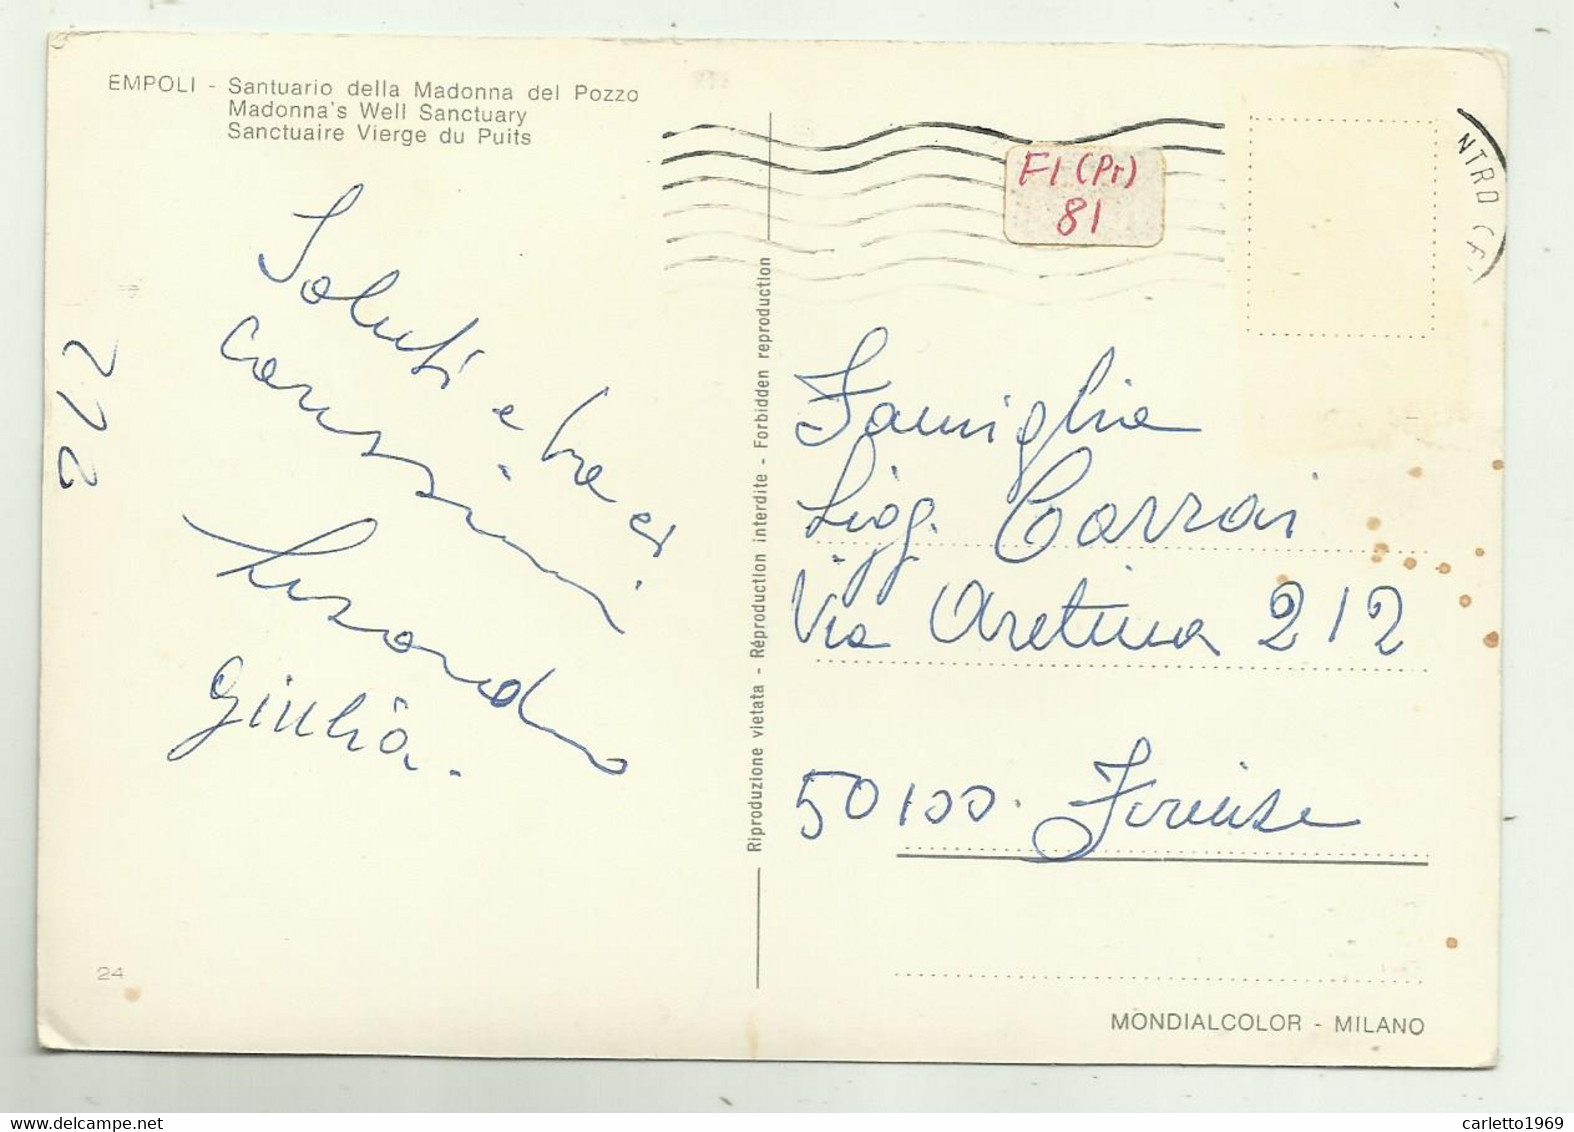 EMPOLI - Santuario della Madonna del Pozzo
Madonna's Well Sanctuary
Sanctuaire Vierge du Puits
NTRO (FI
FI (Pr)
81
Saluti e baci
carissimi
Giulia.
212
Riproduzione vietata - Réproduction interdite - Forbidden reproduction
Famiglia
Sigg. Carrai
Via Aretina 212
50100. Firenze
24
MONDIALCOLOR - MILANO
carletto1969